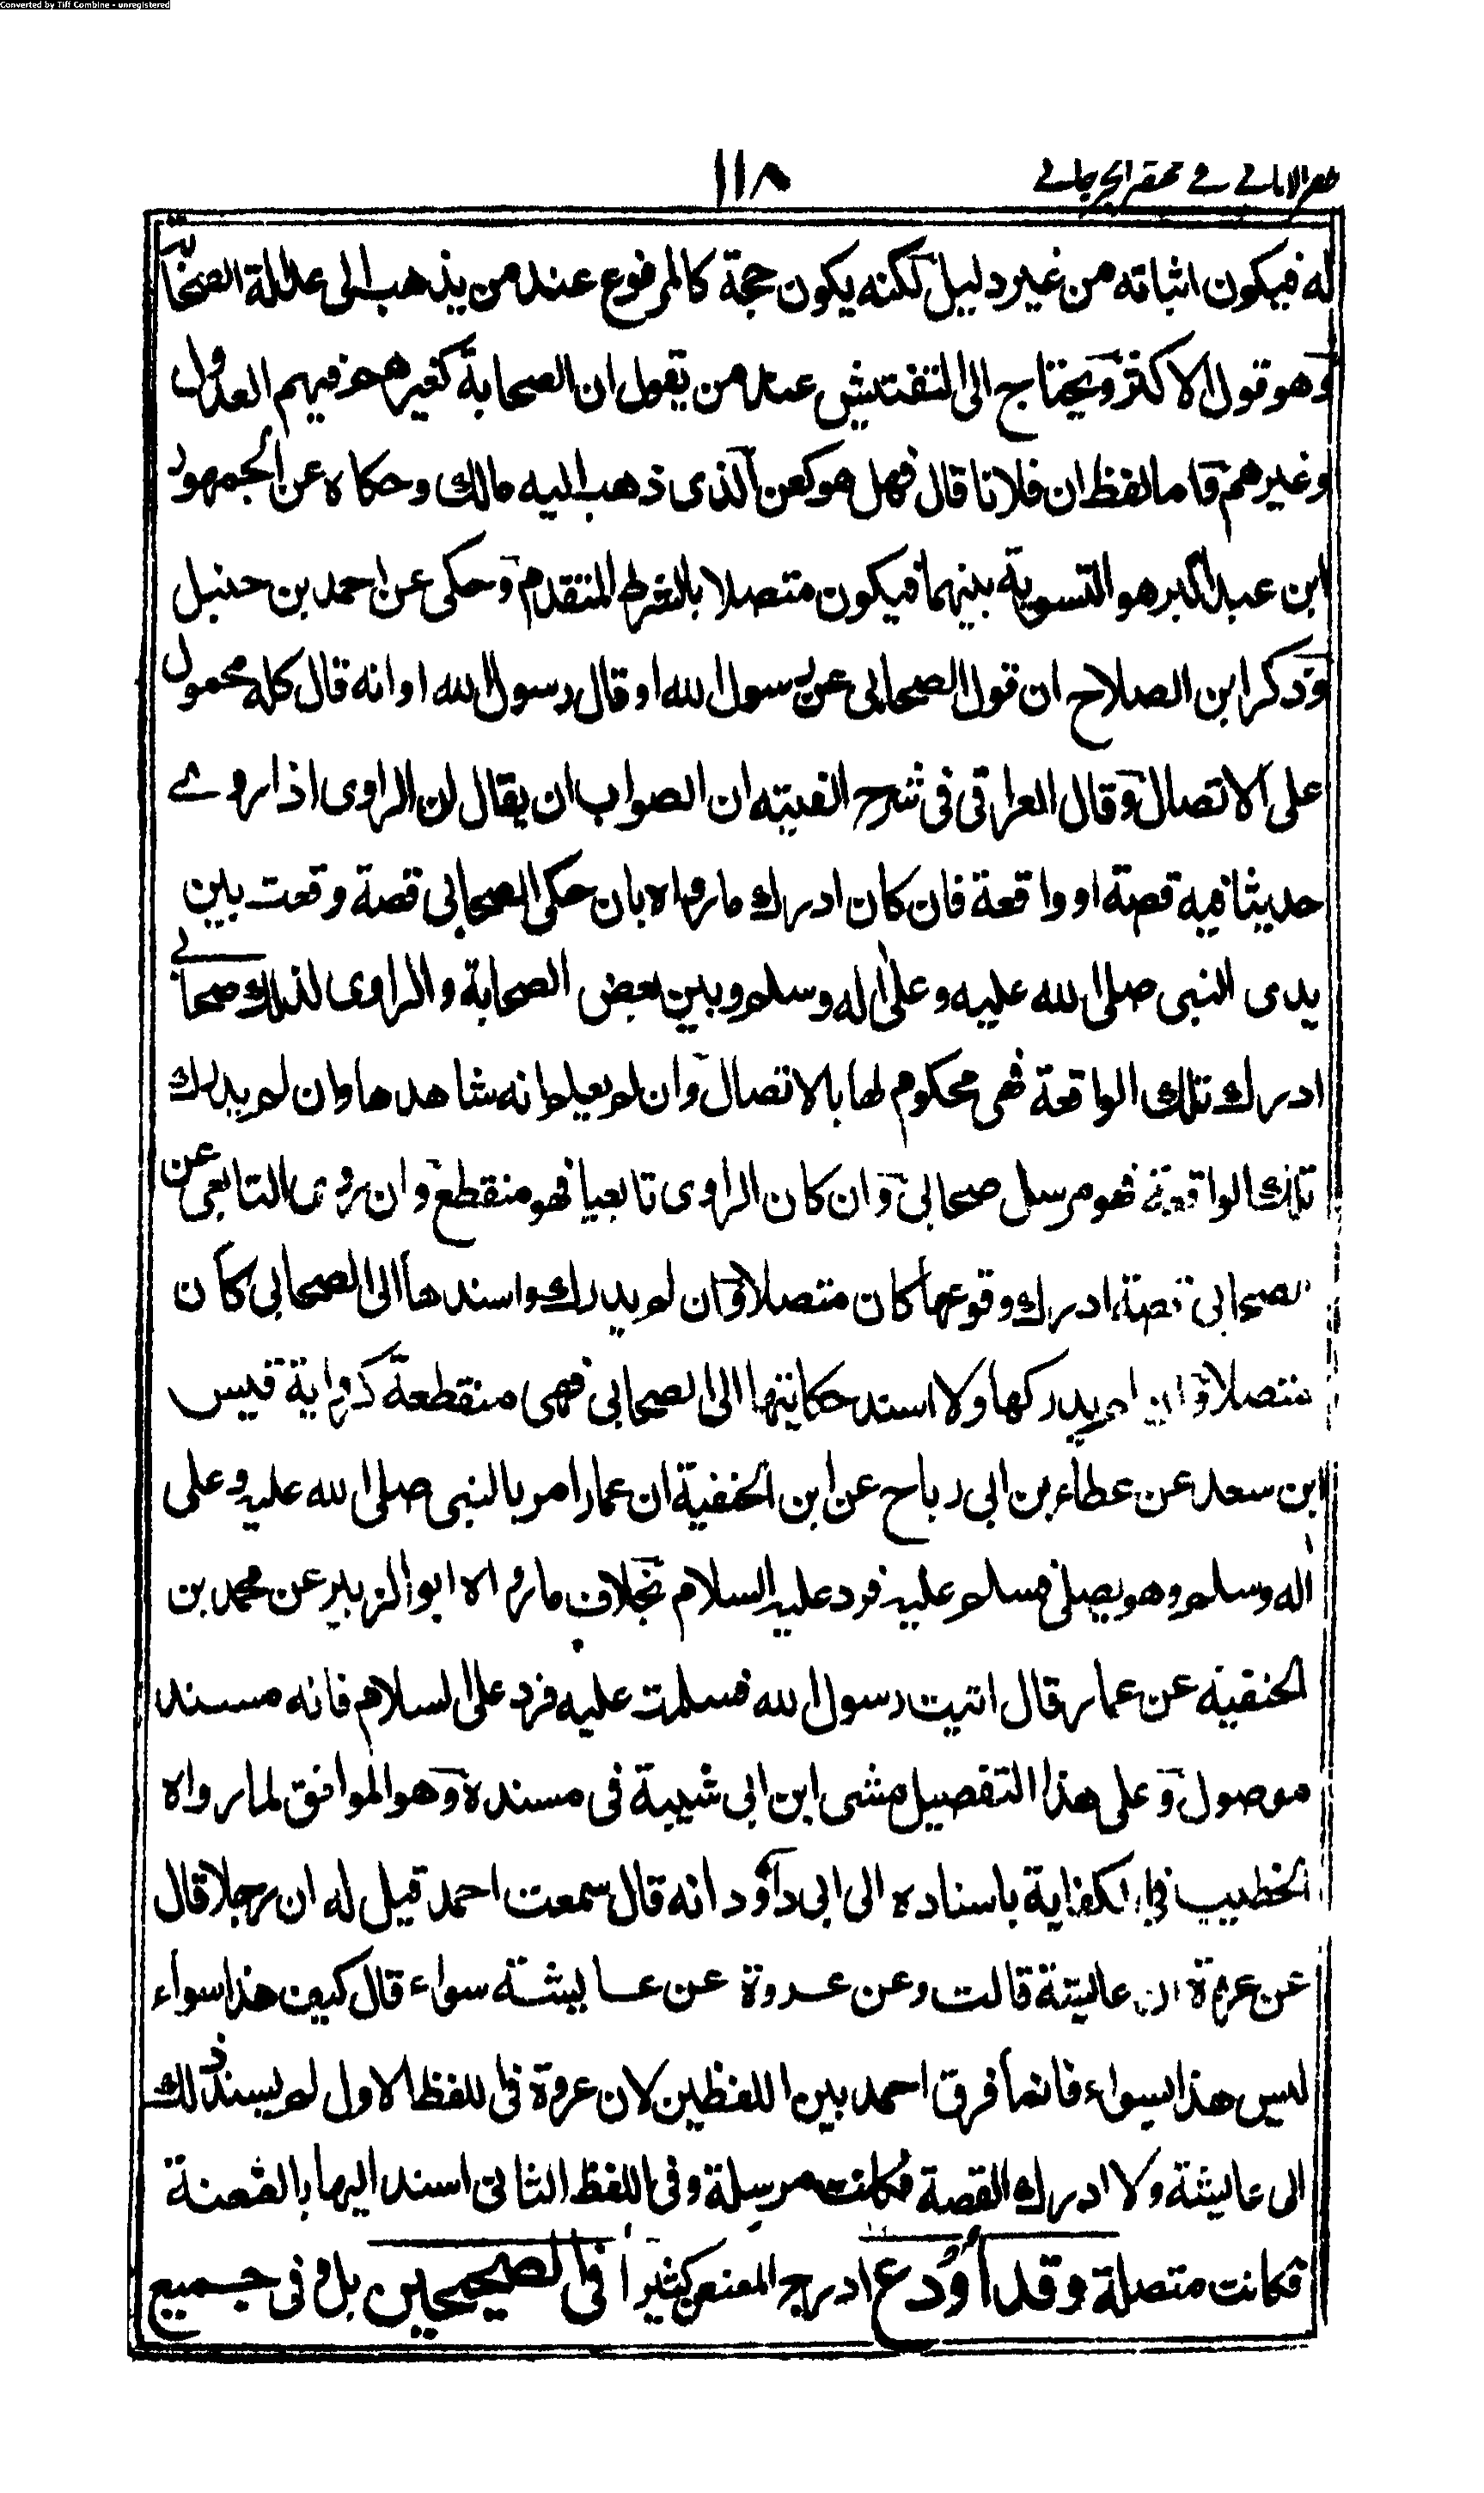 Converted by Tiff Combine - unregistered
ظفر الامانی فی مختصر الجرجانی
١١٨
له فيكون اثباته من غير دليل لكنه يكون حجة كالمرفوع عند من يذهب الى عدالة الصحابة
وهو قول الاكثر ويحتاج الى التفتيش عند من يقول ان الصحابة كغيرهم فيهم العدول
وغيرهم واما لفظ ان فلانا قال فهل هو كعن الذى ذهب اليه مالك وحكاه عن الجمهور
ابن عبد البر هو التسوية بينهما فيكون متصلا بالشرط المتقدم وحكى عن احمد بن حنبل
وذكر ابن الصلاح ان قول الصحابى عن رسول الله او قال رسول الله او انه قال كله محمول
على الاتصال وقال العراقى فى شرح الفيته ان الصواب ان يقال ان الراوى اذا روے
حديثا فيه قصة او واقعة فان كان ادرك ما رواه بان حكى الصحابى قصة وقعت بين
يدى النبى صلى الله عليه وعلى اله وسلم وبين بعض الصحابة والراوى لذلك صحابے
ادرك تلك الواقعة فهى محكوم لها بالاتصال وان لم يعلم انه شاهدها وان لم يدرك
تلك الواقعة فهو مرسل صحابى وان كان الراوى تابعيا فهو منقطع وان روى التابعى عن
الصحابى قصة ادرك وقوعها كان متصلا وان لم يدرك واسندها الى الصحابى كان
متصلا وان لم يدركها ولا اسند حكايتها الى الصحابى فهى منقطعة كرواية قيس
ابن سعد عن عطاء بن ابى رباح عن ابن الحنفية ان عمارا مر بالنبى صلى الله عليه وعلى
اله وسلم وهو يصلى فسلم عليه فرد عليه السلام بخلاف ما رواه ابو الزبير عن محمد بن
الحنفية عن عمار قال اتيت رسول الله فسلمت عليه فرد على السلام فانه مسند
موصول وعلى هذا التفصيل مشى ابن ابى شيبة فى مسنده وهو الموافق لما رواه
الخطيب فى الكفاية باسناده الى ابى داود انه قال سمعت احمد قيل له ان رجلا قال
عن عروة ان عائشة قالت وعن عروة عن عايشة سواء قال كيف هذا سواء
ليس هذا بسواء فانما فرق احمد بين اللفظين لان عروة فى اللفظ الاول لم يسند ذلك
الى عايشة ولا ادرك القصة فكانت مرسلة وفى اللفظ الثانى اسند اليها بالعنعنة
فكانت متصلة وقد اُودع ادرج المعنعن كثيرا فى الصحيحين بل وفى جميع